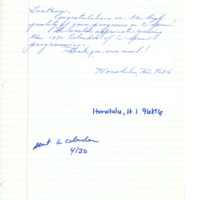 Gentlemen:
Congratulations on the high
quality of your programs on C-Span!
I would appreciate receiving
the 1990 Calendar of C-Span
programming.
Thank you very much!
Honolulu, Hi. 96816
Honolulu, HI 96816
sent a calendar
4/30